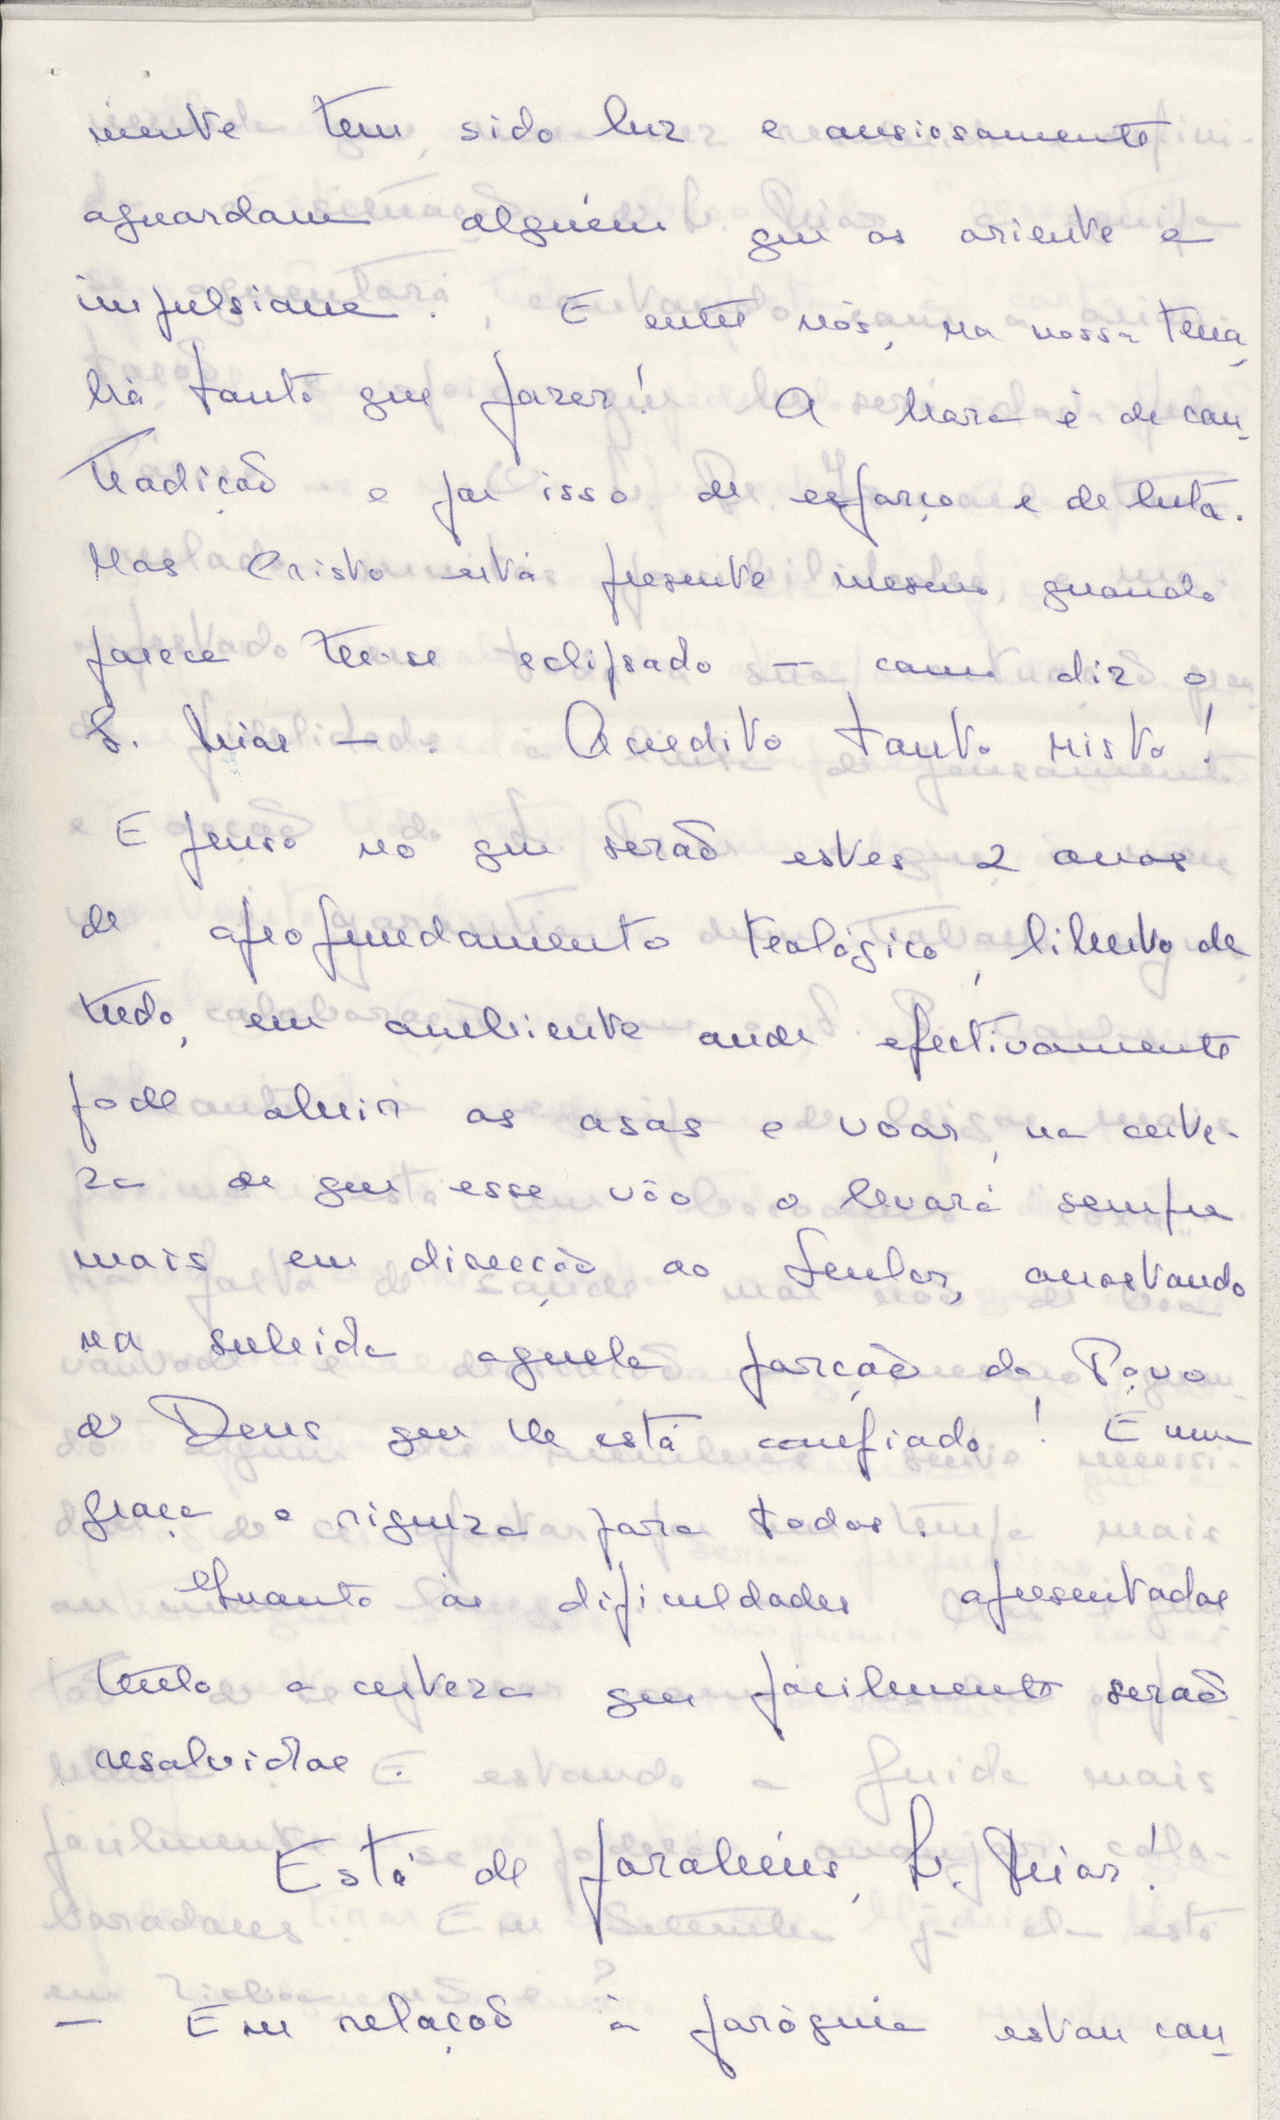 mente tem sido luz e ansiosamente
aguardam alguém que os oriente e
impulsione. E entre nós, na nossa terra,
há tanto que fazer! A hora é de con-
tradição e por isso de esforço e de luta.
Mas Cristo está presente mesmo quando
parece ter-se eclipsado — como diz o
P. Dias —. Acredito tanto nisto!
E penso no que serão estes 2 anos
de aprofundamento teológico, liberto de
tudo, em ambiente onde efectivamente
pode abrir as asas e voar, na certe-
za de que esse vôo o levará sempre
mais em direcção ao Senhor, arrastando
na subida aquela porção do Povo
de Deus que lhe está confiado! É uma
graça e riqueza para todos.
Quanto às dificuldades apresentadas
tenho a certeza que facilmente serão
resolvidas.
Está de parabéns, P. Dias!
— Em relação à paróquia estou con-